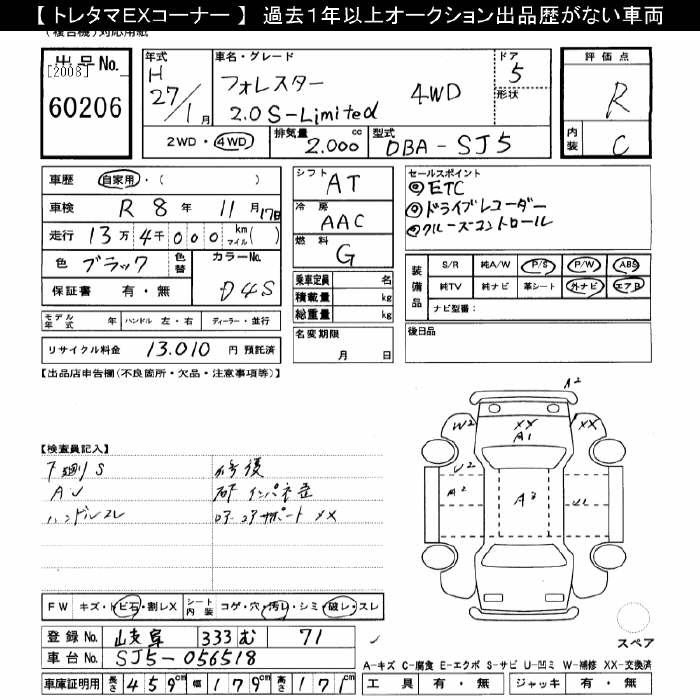 【 トレタマEXコーナー 】 過去１年以上オークション出品歴がない車両
(複合機)対応用紙
出品No.
[2008]
60206
年式
H
27/1月
車名・グレード
フォレスター
2.0 S-Limited
4WD
ドア
5
形状
評価点
R
内装
C
2WD・4WD
排気量
2.000 cc
型式
DBA-SJ5
車歴 自家用・( )
車検 R 8年 11月 17日
走行 13万4千000 km マイル( )
色 ブラック
色替
カラーNo.
D4S
保証書 有・無
シフト
AT
冷房
AAC
燃料
G
乗車定員 名
積載量 kg
総重量 kg
セールスポイント
◎ETC
◎ドライブレコーダー
◎クルーズコントロール
装備品
S/R 純A/W P/S P/W ABS
純TV 純ナビ 革シート 外ナビ エアB
ナビ型番：
モデル年式 年 ハンドル 左・右 ディーラー・並行
リサイクル料金 13.010 円 預託済
名変期限
月 日
後日品
【出品店申告欄(不良箇所・欠品・注意事項等)】
【検査員記入】
下廻りS
AU
ハンドルスレ
修復
A2
W2
XX
A1
XX
W2
A2
A3
FW キズ・トビ石・割レX
シート内装 コゲ・穴・汚レ・シミ・破レ・スレ
登録No. 岐阜 333 む 71
車台No. SJ5-056518
車庫証明用 長さ 459cm 幅 179cm 高さ 171cm
スペア
A-キズ C-腐食 E-エクボ S-サビ U-凹ミ W-補修 XX-交換済
工具 有・無 ジャッキ 有・無